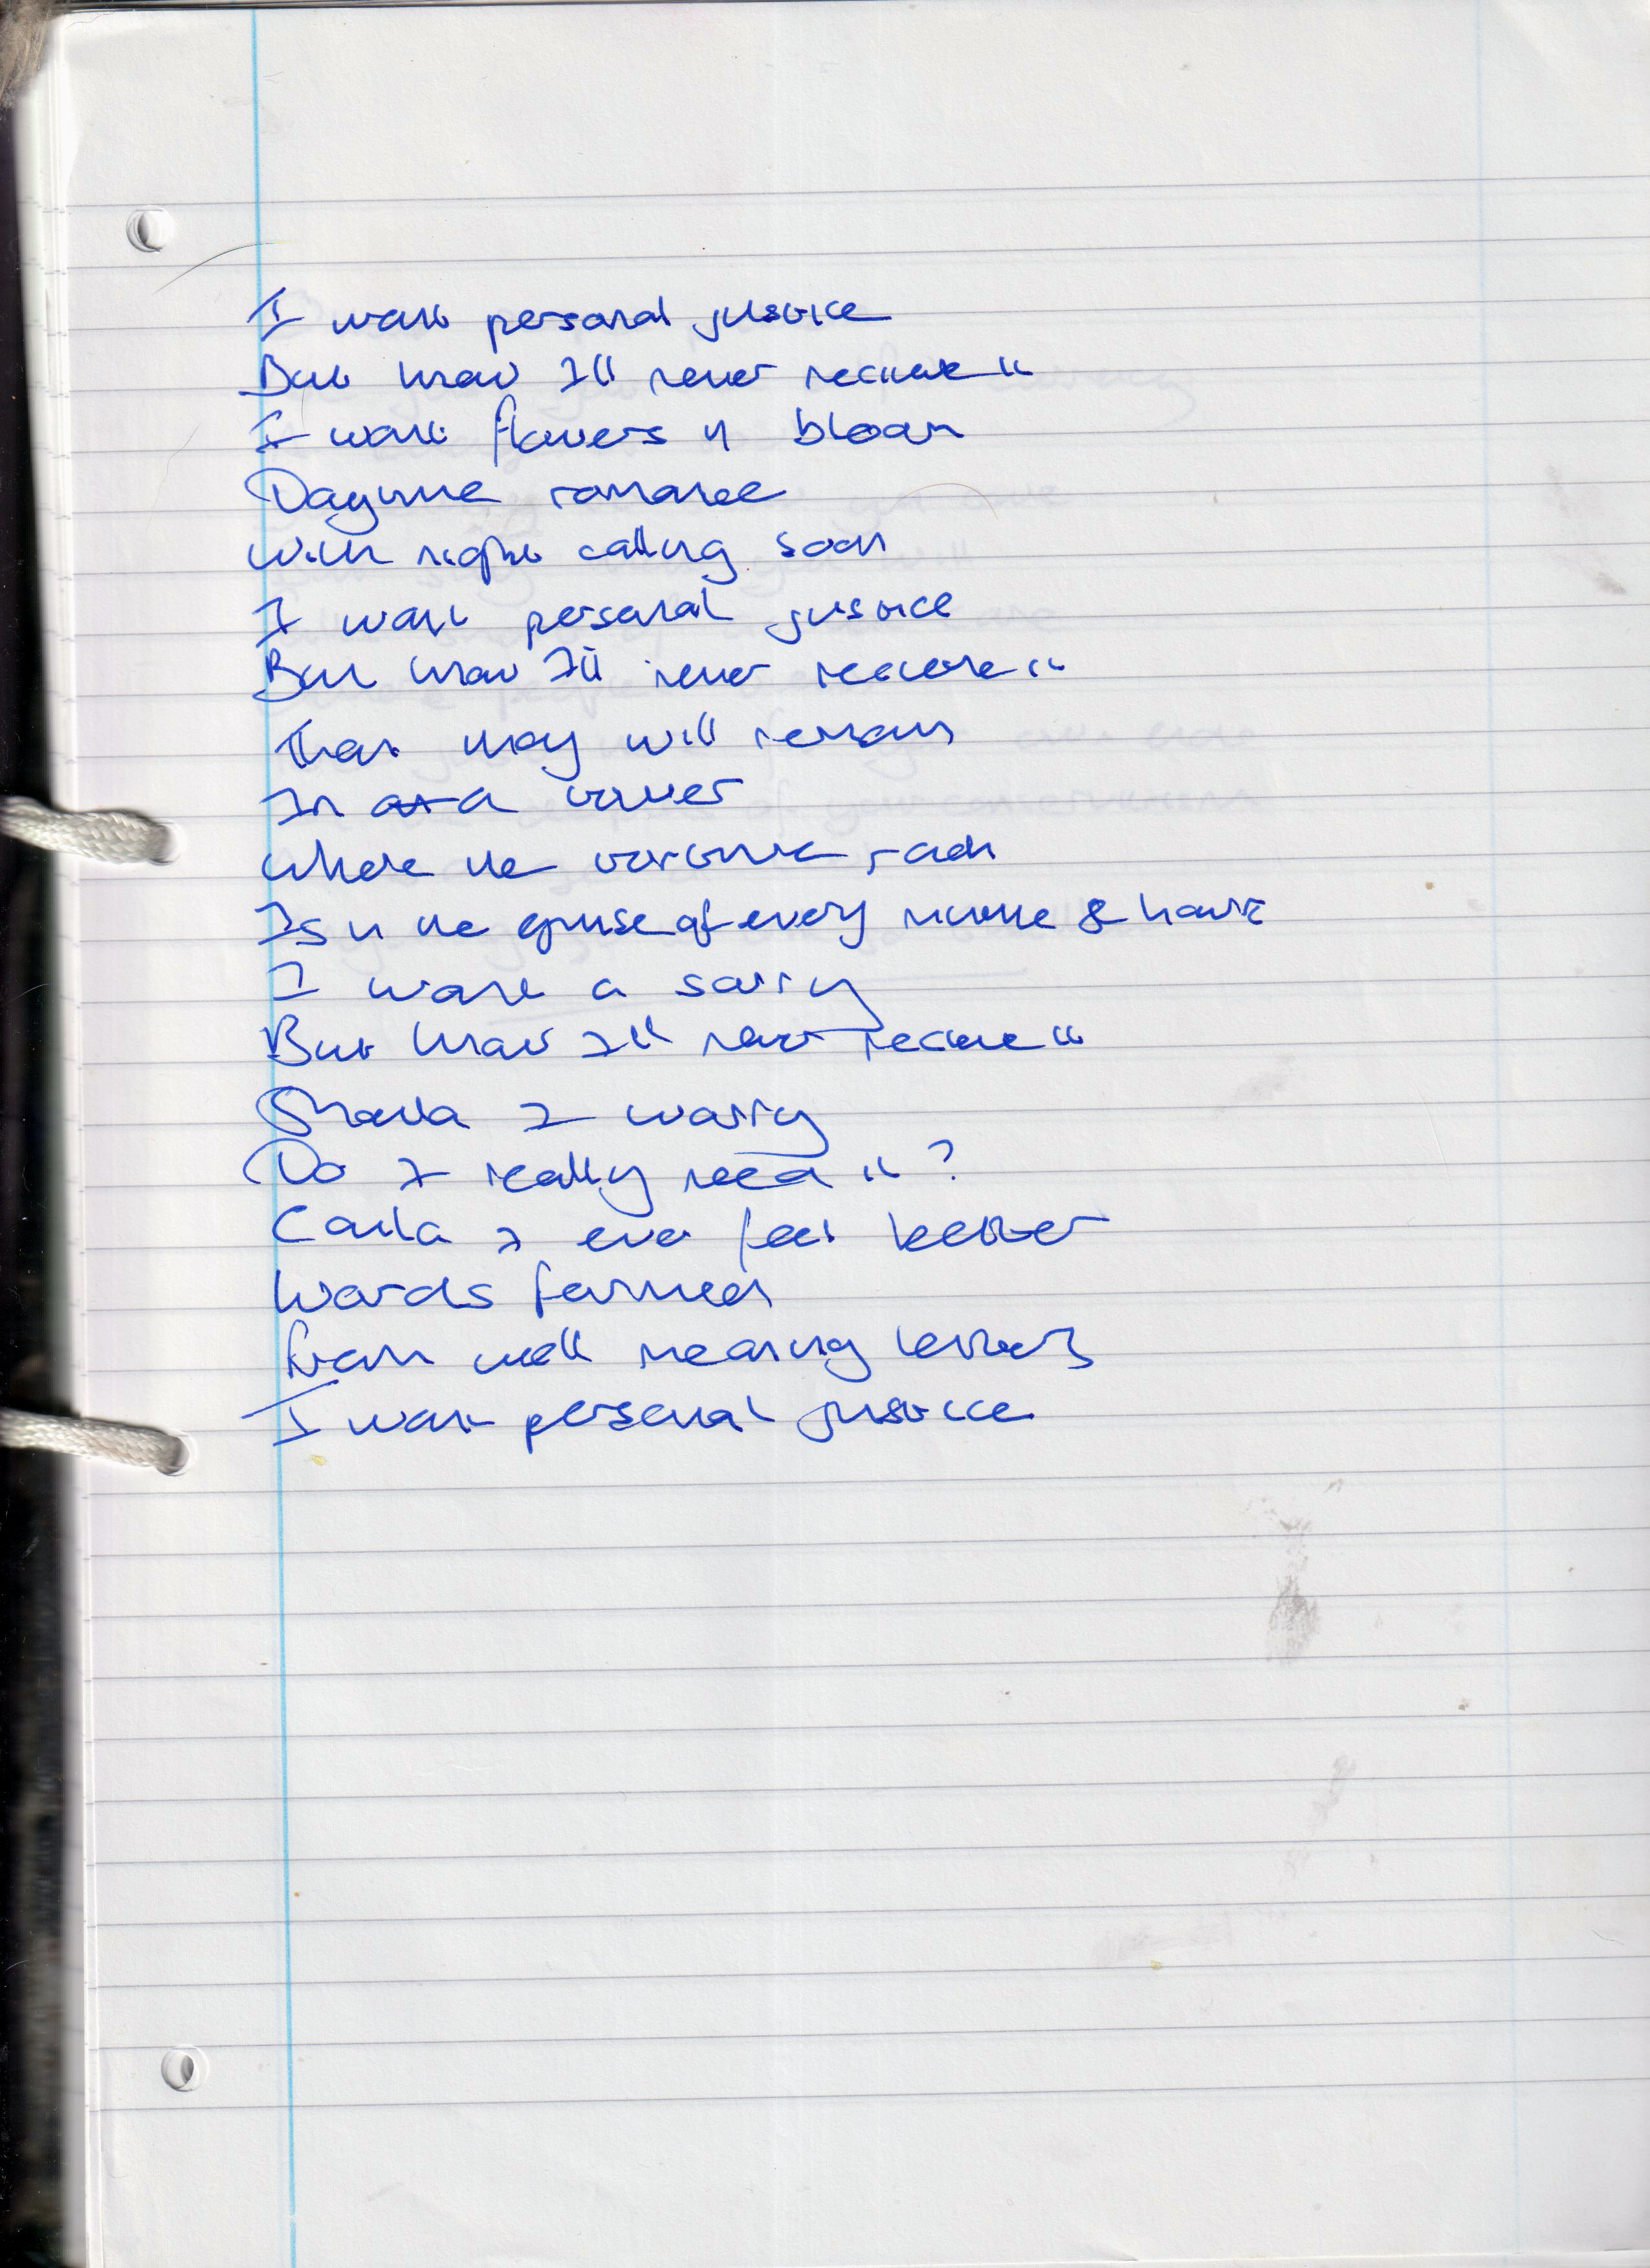 I want personal justice
But know I'll never receive it
I want flowers in bloom
Daytime romance
With night calling soon
I want personal justice
But know I'll never receive it
That they will remain
In a tower
Where the torture rack
Is in the of every minute & hour
I want a sorry
But know I'll never receive it
Should I worry
Do I really need it?
Could I ever feel better
Words formed
from well meaning letters
I want personal justice